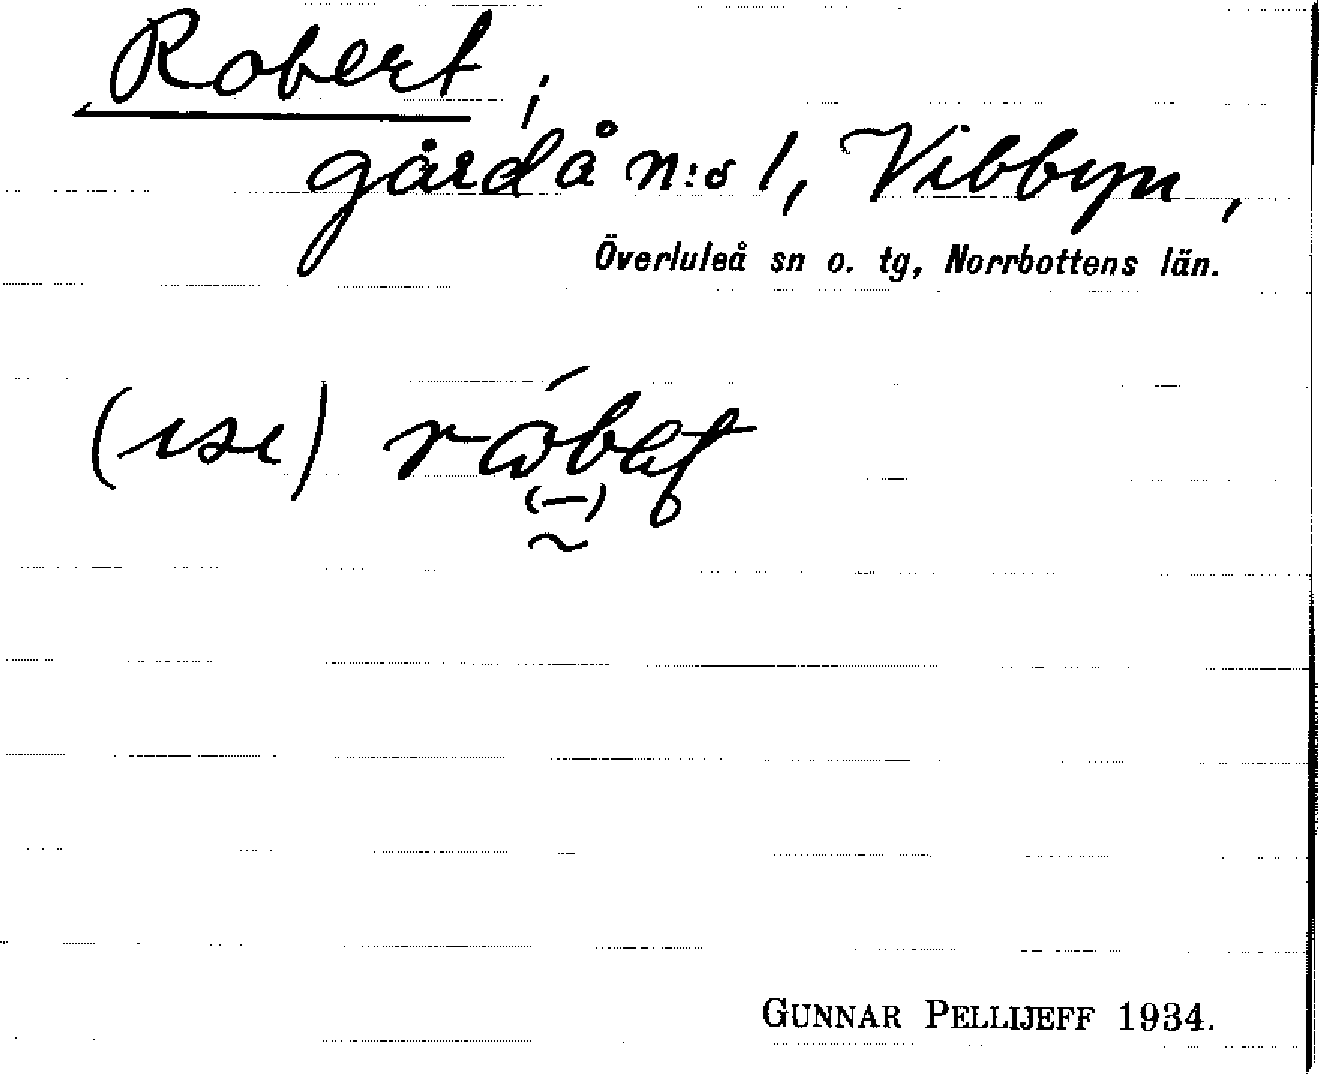 Robert,
gård å n:o 1, Vibbyn,
Överluleå sn o. tg, Norrbottens län.
GUNNAR PELLIJEFF 1934.